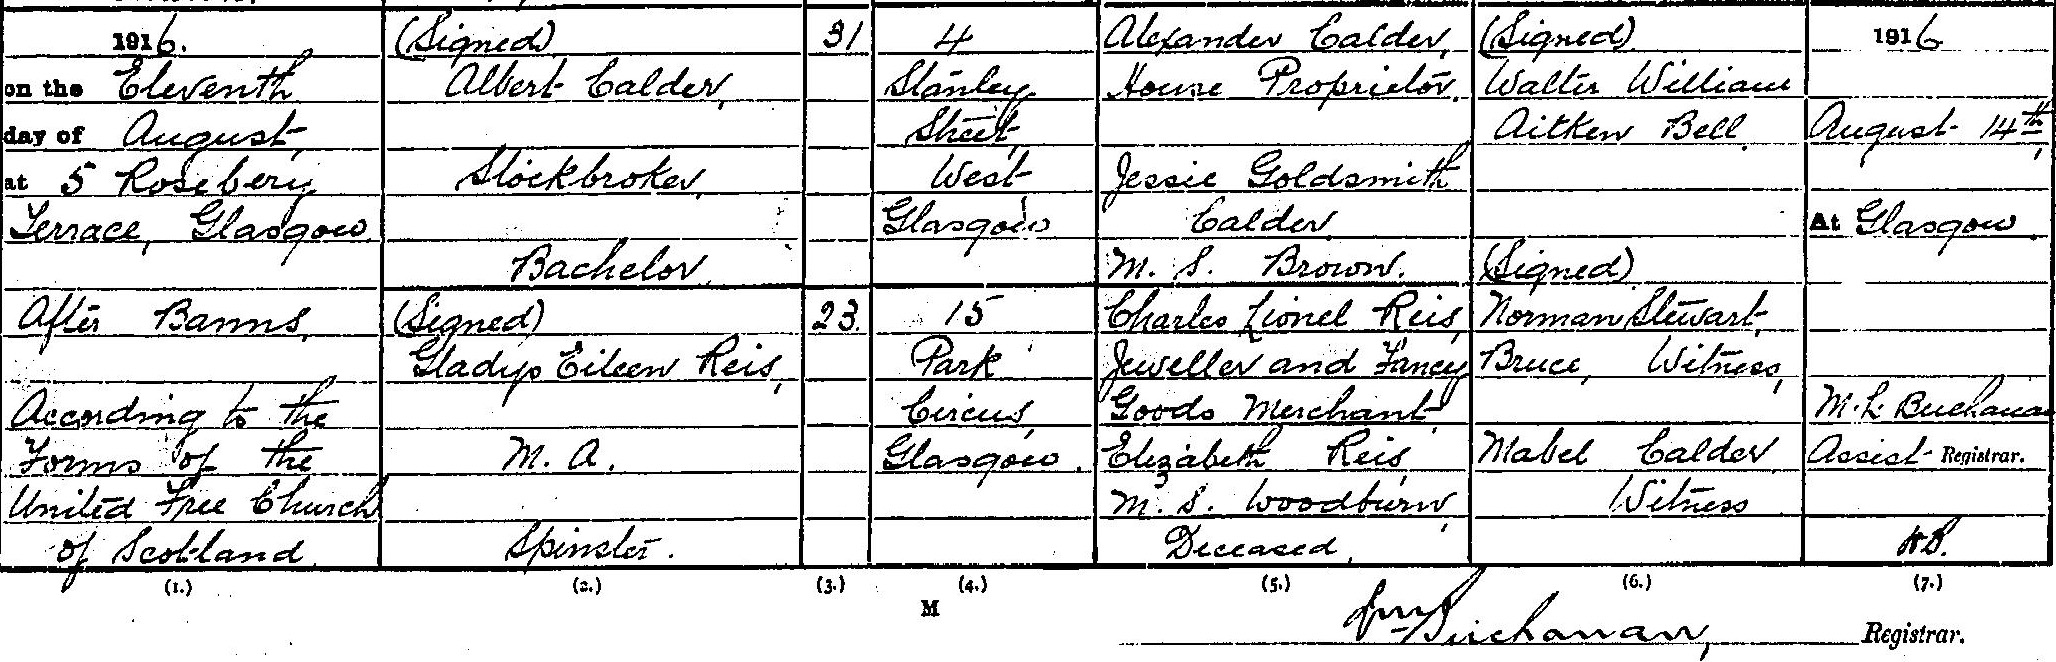 1916.
on the Eleventh
day of August,
at 5 Rosebery
Terrace, Glasgow.
After Banns,
According to the
Forms of the
United Free Church
of Scotland
(1.)
(Signed)
Albert Calder,
Stockbroker,
Bachelor.
(Signed)
Gladys Eileen Reis,
M. A.
Spinster.
(2.)
31
23.
(3.)
4
Stanley
Street,
West
Glasgow
15
Park
Circus,
Glasgow.
(4.)
Alexander Calder,
House Proprietor.
Jessie Goldsmith
Calder
M. S. Brown.
Charles Lionel Reis,
Jeweller and Fancy
Goods Merchant
Elizabeth Reis,
M. S. Woodburn,
Deceased.
(5.)
(Signed)
Walter William
Aitken Bell.
(Signed)
Norman Stewart
Bruce, Witness,
Mabel Calder
Witness
(6.)
1916
August 14th,
At Glasgow.
M. L. Buchanan
Assist Registrar.
(7.)
M
Buchanan, Registrar.